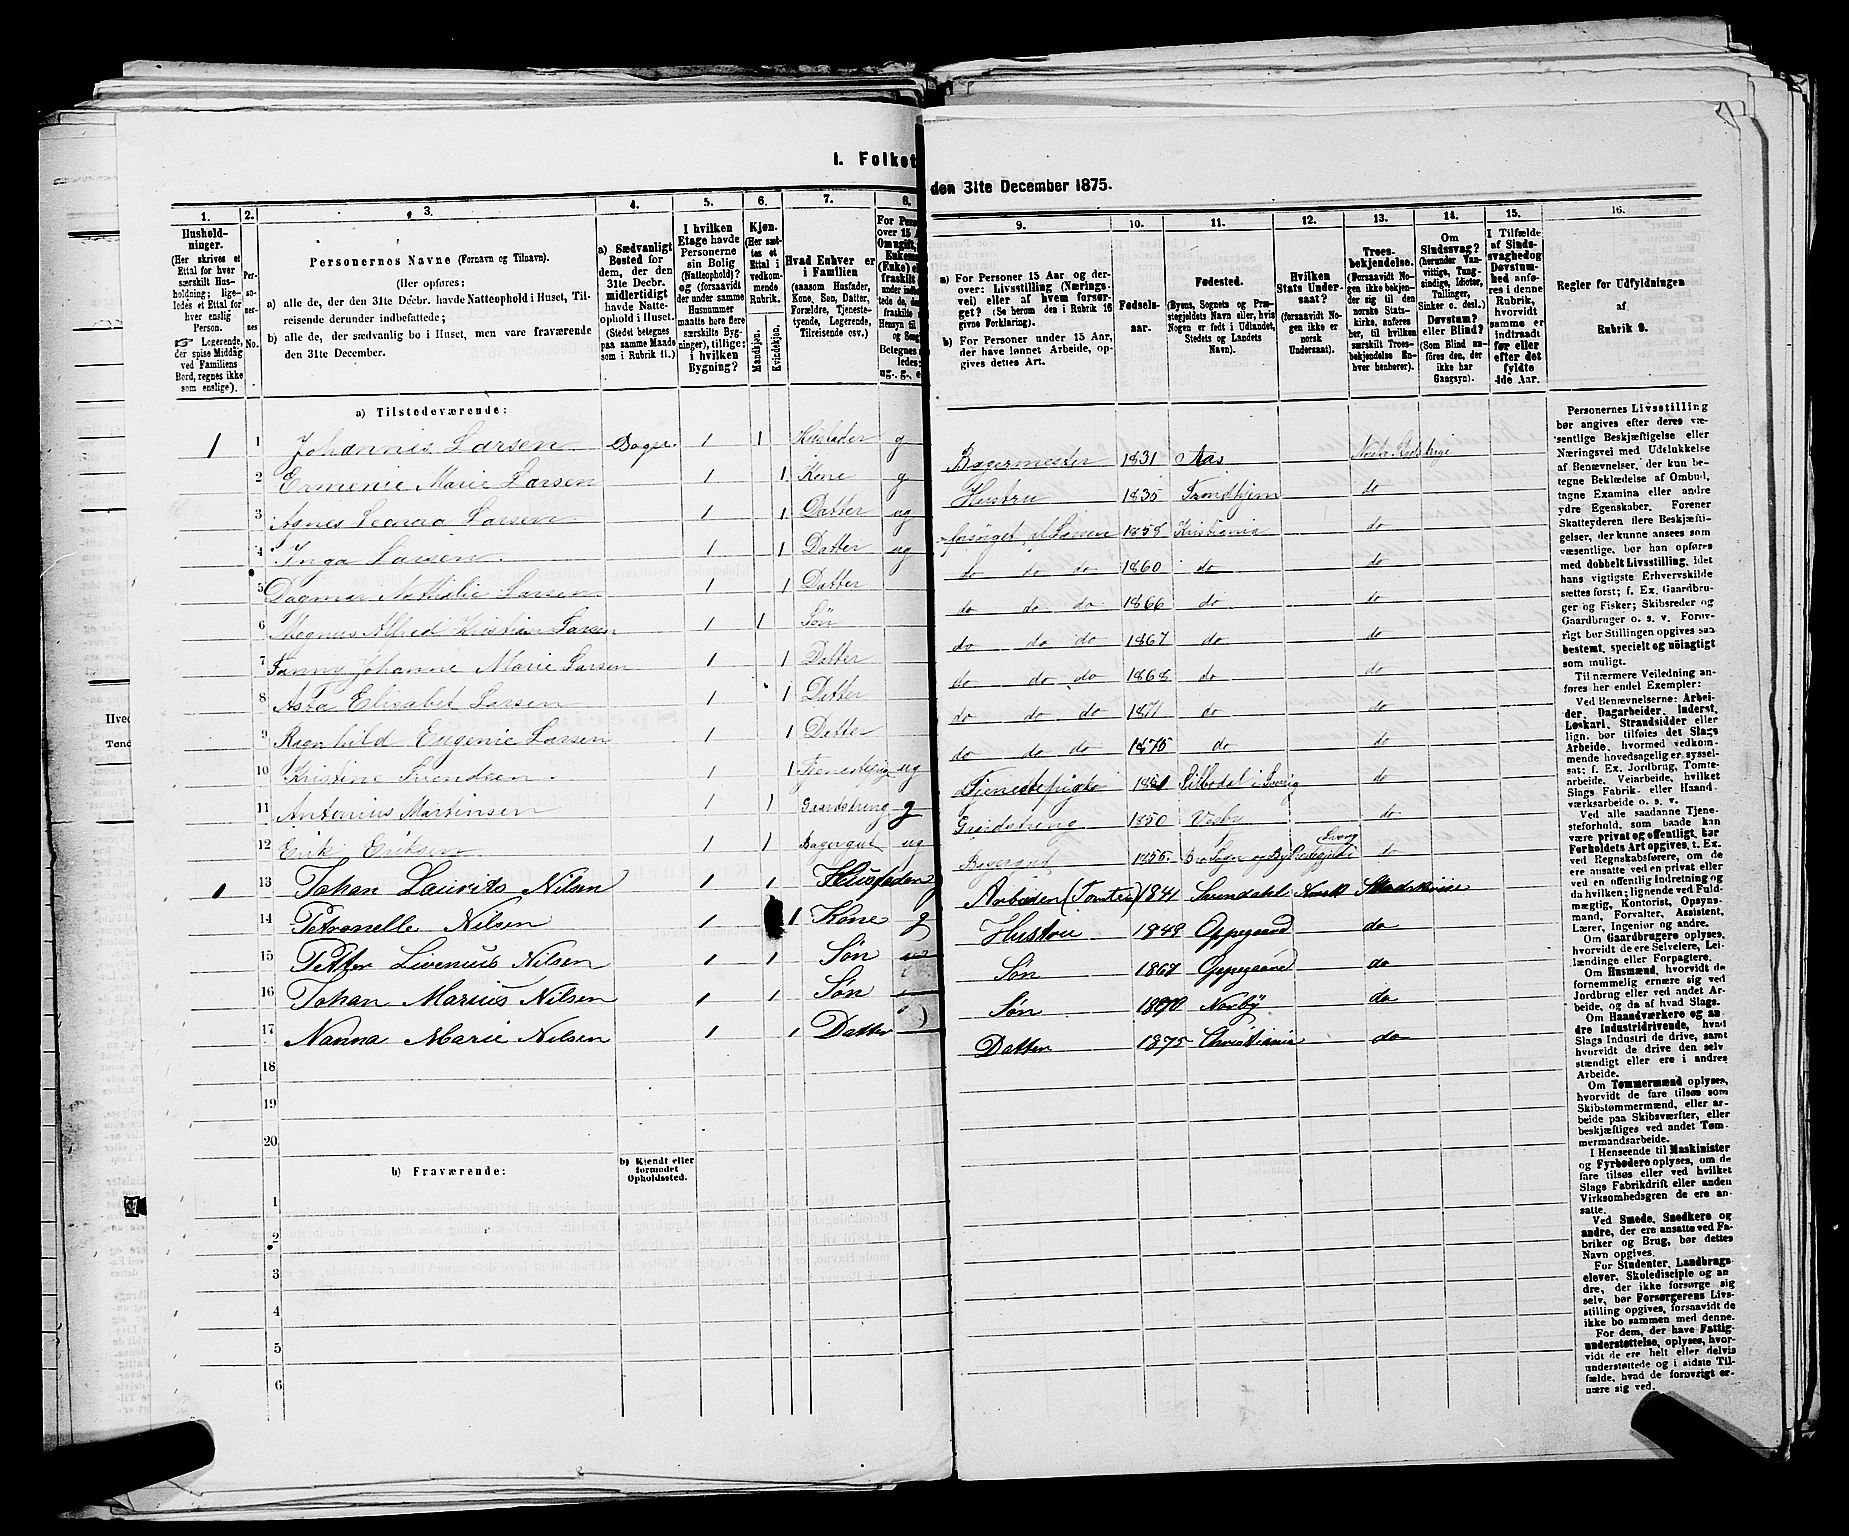 I. Folket
den 31te December 1875.
1. 2. 3. 4. 5. 6. 7. 8.
Hushold-
ninger.
(Her skrives et
Ettal for hver
særskilt Hus-
holdning; lige-
ledes et Ettal for
hver enslig
Person.
Logerende,
der spise Middag
ved Familiens
Bord, regnes ikke
som enslige).
Per-
so-
ner-
nes
No.
Personernes Navne (Fornavn og Tilnavn).
(Her opføres:
a) alle de, der den 31te Decbr. havde Natteophold i Huset, Til-
reisende derunder indbefattede;
b) alle de, der sædvanlig bo i Huset, men vare fraværende
den 31te December.
a) Sædvanligt
Bosted for
dem, der den
31te Decbr.
midlertidigt
havde Natte-
ophold i Huset.
(Stedet betegnes
paa samme Maade
som i Rubrik 11.)
I hvilken
Etage havde
Personerne
sin Bolig
(Natteophold)?
og (forsaavidt
der under samme
Husnummer
maatte høre flere
særskilte Byg-
ninger), tillige:
i hvilken
Bygning?
Kjøn.
(Her sæt-
tes et
Ettal i
vedkom-
mende
Rubrik.
Mandkjøn.
Kvindekjøn.
Hvad Enhver er
i Familien
(saasom Husfader,
Kone, Søn, Datter,
Forældre, Tjeneste-
tyende, Logerende,
Tilreisende osv.)
9. 10. 11. 12. 13. 14. 15. 16.
a) For Personer 15 Aar og der-
over: Livsstilling (Nærings-
vei) eller af hvem forsør-
get. (Se herom den i Rubrik 16
givne Forklaring).
b) For Personer under 15 Aar,
der have lønnet Arbeide, op-
gives dettes Art.
Fødsels-
aar.
Fødested.
(Byens, Sognets og Præ-
stegjeldets Navn eller, hvis
Nogen er født i Udlandet,
Stedets og Landets
Navn).
Hvilken
Stats Under-
saat?
(forsaavidt No-
gen ikke er
norsk
Undersaat).
Troes-
bekjendelse.
(Forsaavidt No-
gen ikke bekjen-
der sig til den
norske Stats-
kirke, anføres
her, til hvilken
særskilt Troes-
bekjendelse En-
hver henhører).
Om
Sindssvag?
(herunder Van-
vittige, Tung-
sindige, Idioter,
Tullinger,
Sinker o. desl.)
Døvstum?
eller Blind?
(Som Blind an-
føres den, der
ikke har
Gangsyn).
I Tilfælde
af Sinds-
svaghed og
Døvstum-
hed anfø-
res i denne
Rubrik,
hvorvidt
samme er
indtraadt
før eller
efter det
fyldte
4de Aar.
Regler for Udfyldningen
af
Rubrik 9.
a) Tilstedeværende:
1 1 Johannes Larsen 1 1 Husfader g Bagermester 1831 Aas
2 Ermenie Marie Larsen 1 1 Kone g Hustru 1835 Trondhjem do
3 Agnes Leonaa Larsen 1 1 Datter ug forsørget af Larsen 1858 Kristiania do
4 Inga Larsen 1 1 Datter ug do do do 1860 do do
5 Dagmar Nathalie Larsen 1 1 Datter do do do 1866 do do
6 Magnus Alfred Kristian Larsen 1 1 Søn do do do 1867 do do
7 Fanny Johanne Marie Larsen 1 1 Datter do do do 1868 do do
8 Asta Elisabet Larsen 1 1 Datter do do do 1871 do do
9 Ragnhild Eugenie Larsen 1 1 Datter do do do 1875 do do
10 Kristine Svendsen 1 1 Tjenestepige ug Tjenestepige do
11 Antonius Martinsen 1 1 Gaardsdreng g Gaardsdreng 1850 do
12 Erik Eriksen 1 1 ug do
1 13 Johan Laurits Nilsen 1 1 Husfader g Arbeider 1841 Norsk Statskirke
14 Petronelle Nilsen 1 1 Kone g Hustru 1849 Oppegaard do
15 Petter Livenius Nilsen 1 1 Søn Søn 1867 Oppegaard do
16 Johan Marius Nilsen 1 1 Søn Søn 1870 Norby do
17 Nanna Marie Nilsen 1 1 Datter Datter 1875 Christiania do
18
19
20
b) Fraværende:
b) Kjendt eller
formodet
Opholdssted.
1
2
3
4
5
6
Personernes Livsstilling
bør angives efter deres væ-
sentlige Beskjæftigelse eller
Næringsvei med Udelukkelse
af Benævnelser, der kun be-
tegne Beklædelse af Ombud,
tagne Examina eller andre
ydre Egenskaber. Forener
Skatteyderen flere Beskjæfti-
gelser, der kunne ansees som
væsentlige, bør han opføres
med dobbelt Livsstilling, idet
hans vigtigste Erhvervskilde
sættes først; f. Ex. Gaardbru-
ger og Fisker; Skibsreder og
Gaardbruger o. s. v. Forøv-
rigt bør Stillingen opgives saa
bestemt, specielt og nöiagtigt
som muligt.
Til nærmere Veiledning an-
føres her endel Exempler:
Ved Benævnelserne: Arbei-
der, Dagarbeider, Inderst,
Løskarl, Strandsidder eller
lign. bør tilføies det Slags
Arbeide, hvormed vedkom-
mende hovedsagelig er syssel-
sat; f. Ex. Jordbrug, Tomte-
arbeide, Veiarbeide, hvilket
Slags Fabrik- eller Haand-
værksarbeide o. s. v.
Ved alle saadanne Tjene-
steforhold, som baade kan
være privat og offentligt, bør
Forholdets Art opgives, t. Ex.
ved Regnskabsførere, om de
ere ansatte ved en privat eller
ved en offentlig Indretning og
da hvilken; lignende ved Fuld-
mægtig, Kontorist, Opsyns-
mand, Forvalter, Assistent,
Lærer, Ingeniør og andre.
Om Gaardbrugere oplyses,
hvorvidt de ere Selveiere, Lei-
lændinge eller Forpagtere.
Om Husmænd, hvorvidt de
fornemmelig ernære sig ved
Jordbrug eller ved andet Ar-
beide, og da af hvad Slags.
Om Haandværkere og an-
dre Industridrivende, hvad
Slags Industri de drive, samt
hvorvidt de drive den selv-
stændigt eller ere i andres
Arbeide.
Om Tømmermænd oplyses,
hvorvidt de fare tilsøs som
Skibstømmermænd, eller ar-
beide paa Skibsværfter, eller
beskjæftiges ved andet Tøm-
mermandsarbeide.
I Henseende til Maskinister
og Fyrbødere oplyses, om de
fare tilsøs eller ved hvilket
Slags Fabrikdrift eller anden
Virksomhedsgren de ere an-
satte.
Ved Smede, Snedkere og
andre, der ere ansatte ved Fa-
briker og Brug, bør dettes
Navn opgives.
For Studenter, Landbrugs-
elever, Skoledisciple og an-
dre, der ikke forsørge sig
selv, bør Forsørgerens Livs-
stilling opgives, forsaavidt de
ikke bo sammen med denne.
For dem, der have Fattig-
understøttelse, oplyses, hvor-
vidt de ere helt eller delvis
understøttede og i sidste Til-
fælde, hvad de forøvrigt er-
nære sig ved.